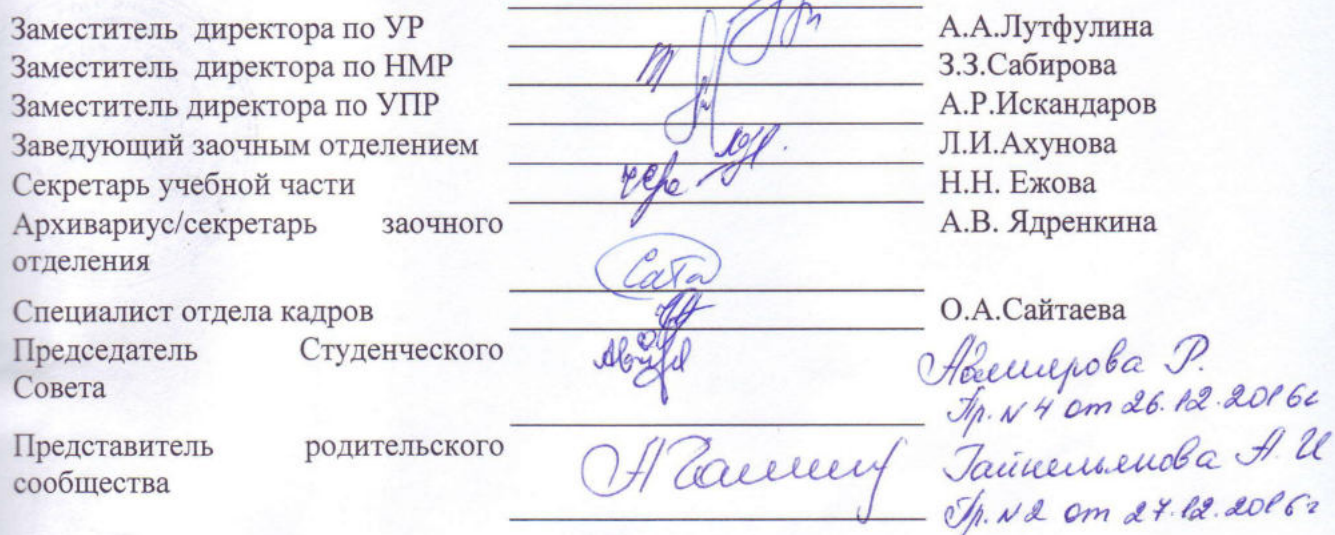 Заместитель директора по УР А.А.Лутфулина
Заместитель директора по НМР З.З.Сабирова
Заместитель директора по УПР А.Р.Искандаров
Заведующий заочным отделением Л.И.Ахунова
Секретарь учебной части Н.Н. Ежова
Архивариус/секретарь заочного А.В. Ядренкина
отделения
Специалист отдела кадров О.А.Сайтаева
Председатель Студенческого
Совета Р.
Пр. N 4 от 26.12.2016г
Представитель родительского А И
сообщества
Пр. N 2 от 27.12.2016г